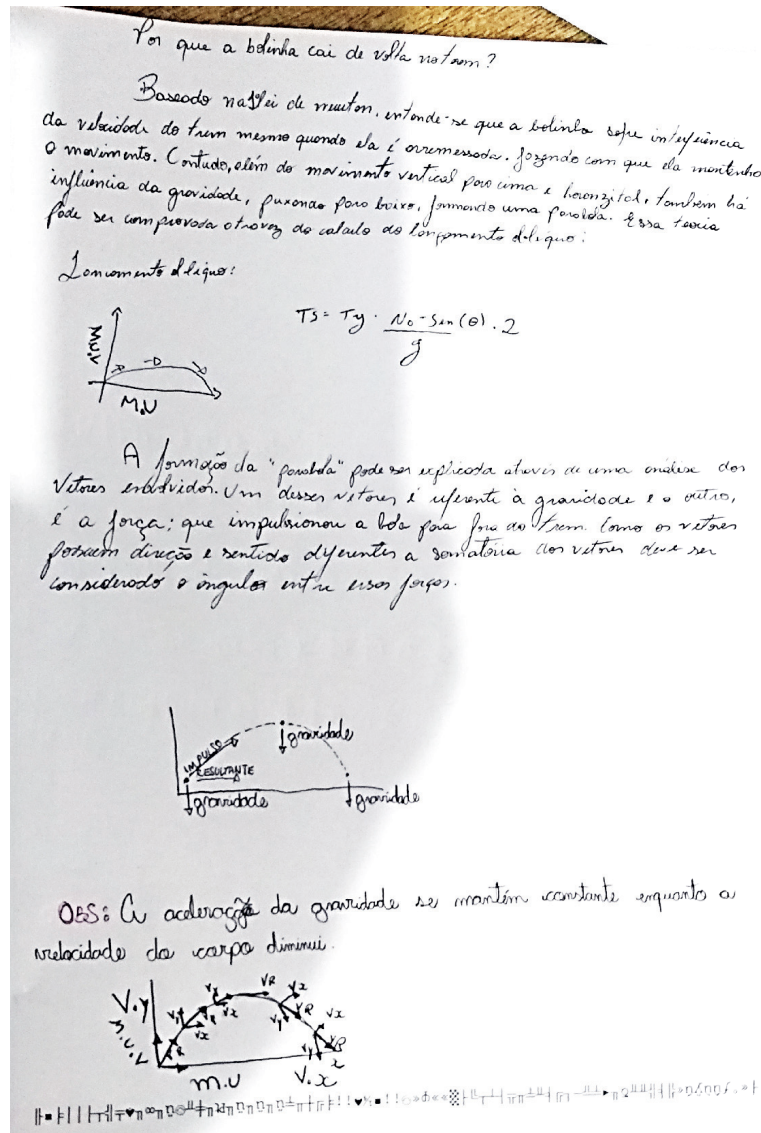 Por que a bolinha cai de volta no trem?
Baseado na 1ª lei de newton, entende-se que a bolinha sofre interferência
da velocidade do trem mesmo quando ela é arremessada, fazendo com que ela mantenha
o movimento. Contudo, além do movimento vertical para cima e horonzital, também há
influência da gravidade, puxando para baixo, formando uma parabola. Essa teoria
pode ser comprovada atravez do calculo do lançamento obliquo:
Lancamento obliquo:
Ts = Ty · No - Sen(θ) · 2
g
M.U.V
M.U
A formação da "parabola" pode ser explicada através de uma análise dos
vetores envolvidos. Um desses vetores é referente à gravidade e o outro,
é a força; que impulsionou a bola para fora do trem. Como os vetores
possuem direção e sentido diferentes a somatória dos vetores deve ser
considerado o ângulos entre essas forças.
IMPULSO
RESULTANTE
gravidade
gravidade
gravidade
OBS: A aceleração da gravidade se mantém constante enquanto a
velocidade do corpo diminui.
V.y
M.U.V
VR
Vy
VR
Vx
Vy
Vx
VR
Vx
VR
Vy
Vx
Vy
VR
x
M.U
V.x